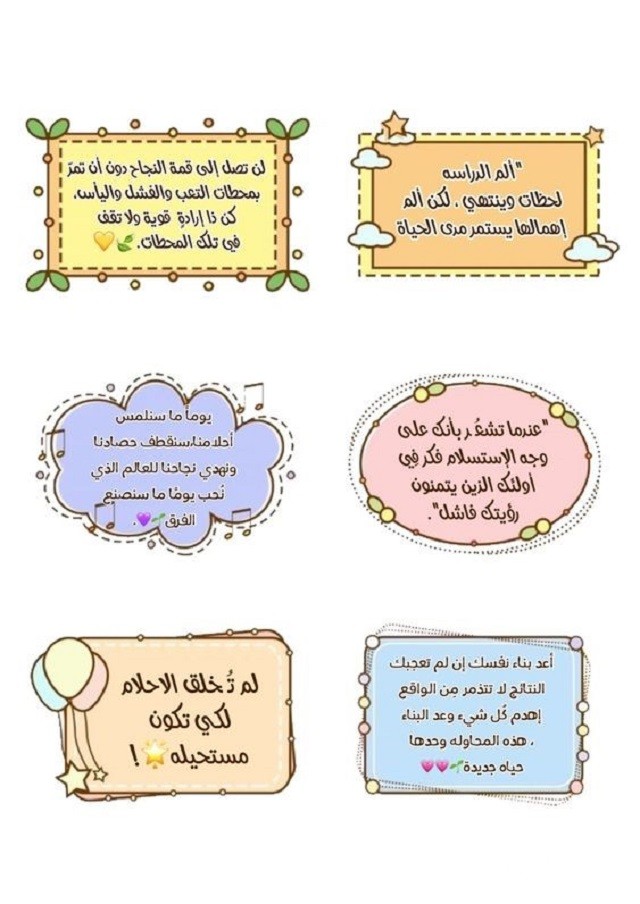 "ألم الدراسه
لحظات وينتهي ، لكن ألم
إهمالها يستمر مدى الحياة
لن تصل إلى قمة النجاح دون أن تمرّ
بمحطات التعب والفشل واليأس،
كن ذا إرادةٍ قوية ولا تقف
في تلك المحطات.🍃💛
"عندما تشعُر بأنك على
وجه الإستسلام فكر فِي
أولئك الذين يتمنون
رؤيتك فاشل".
يوماً ما سنلمس
أحلامنا،سنقطف حصادنا
ونهدي نجاحنا للعالم الذي
نُحب يومًا ما سنصنع
الفرق🌱💜.
أعد بناء نفسك إن لم تعجبك
النتائج لا تتذمر مِن الواقع
إهدم كُل شيء وعد البناء
، هذه المحاوله وحدها
حياه جديدة🌱💗💗
لم تُخلق الاحلام
لكي تكون
مستحيله🌟!